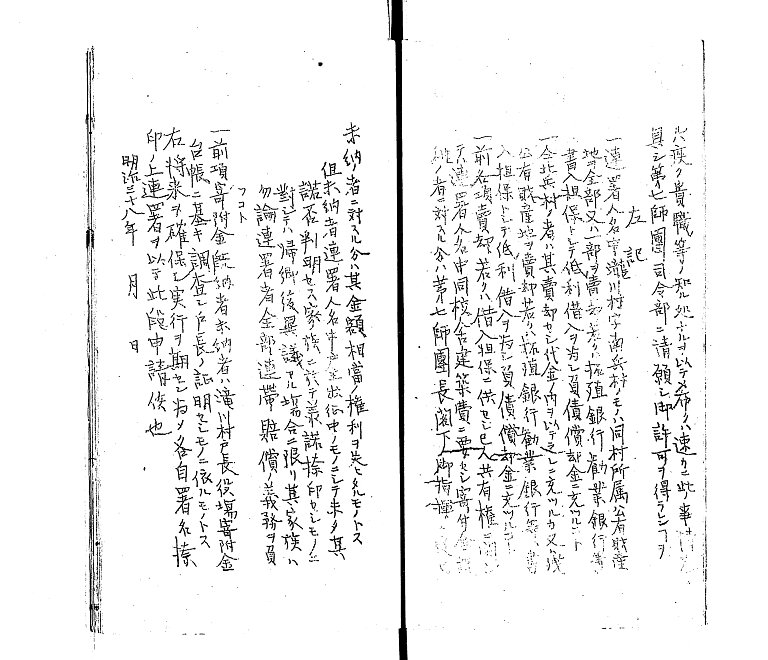 ハ疾ク貴職等ノ知ル処ナルヲ以テ希クハ速カニ此事情
具シ第七師團司令部ニ請願シ御許可ヲ得ラレン
左記
一連署人名字瀧川村字南兵村ノモノハ同村所属公有財産
地ヲ全部又ハ一部ヲ賣却若クハ拓殖銀行勧業銀行等
書入担保トシテ低利借入ヲ為シ負債償却金ニ充ツルコト
一全北兵村ノ者ハ其賣却セシ代金ノ内ヲ以テ之レニ充ツルカ又ハ残
公有財産地ヲ賣却若クハ拓殖銀行勧業銀行等ヘ書
入担保トシテ低利借入ヲ為シ負債償却金ニ充ツルコト
一前各項賣却若クハ借入担保ニ供セシ已人共有権ニ
テハ連署人名中同校舎建築費ニ要セシ寄附金
ノ者ニ対スル分ハ第七師團長閣下ノ御指揮
未納者ニ対スル分ハ其金額相當ノ権利ヲ失シタルモノトス
但未納者連署人名中出征中ノモノニシテ未タ其
諾否判明セス家族ニ於テ承諾捺印セシモノニ
對シテハ帰郷後異議アル場合ニ限リ其家族ハ
勿論連署者全部連帯賠償ノ義務ヲ負
フコト
一前項寄附金既納者未納者ハ滝川村戸長役場寄附金
台帳ニ基キ調査シ戸長ノ証明セシモノニ依ルモノトス
右将来ヲ確保シ実行ヲ期セン為メ各自署名捺
印ノ上連署ヲ以テ此段申請候也
明治三十八年 月 日